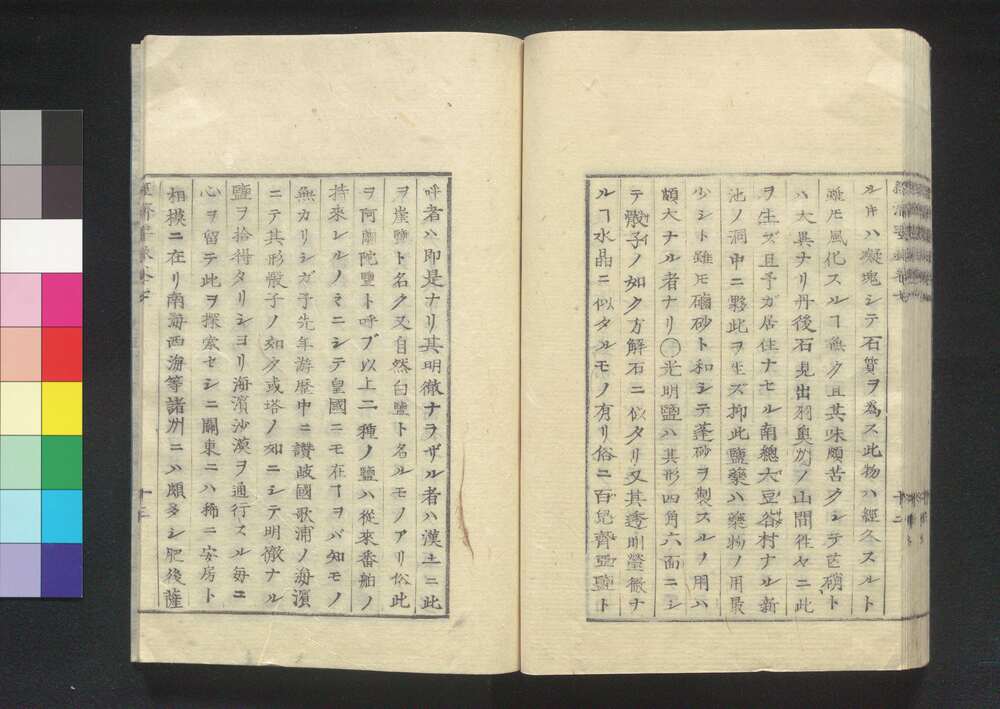 ルキハ凝塊シテ石質ヲ為ス此物ハ經久スルト
雖モ風化スルヿ無ク且其味頗苦クシテ芒硝ト
ハ大異ナリ丹後石見出羽奥州ノ山間往々ニ此
ヲ生ズ且予ガ居住ナセル南總大豆谷村ナル新
池ノ洞中ニ夥此ヲ生ズ抑此鹽藥ハ藥物ノ用最
少シト雖モ硇砂ト和シテ蓬砂ヲ製スルノ用ハ
頗大ナル者ナリ〇光明鹽ハ其形四角六面ニシ
テ骰子ノ如ク方解石ニ似タリ又其透明瑩徹ナ
ルヿ水晶ニ似タルモノ有リ俗ニ百兒齊亞鹽ト
呼者ハ即是ナリ其明徹ナラザル者ハ漢土ニ此
ヲ崖鹽ト名ク又自然白鹽ト名ルモノアリ俗此
ヲ阿蘭陀鹽ト呼ブ以上二種ノ鹽ハ從來番舶ノ
持來レルノミニシテ皇國ニモ在ヿヲバ知モノ
無カリシガ予先年游歴中ニ讃岐國歌浦ノ海濱
ニテ其形骰子ノ如ク或塔ノ如ニシテ明徹ナル
鹽ヲ拾得タリシヨリ海濱沙漠ヲ通行スル毎ニ
心ヲ留テ此ヲ探索セシニ關東ニハ稀ニ安房ト
相摸ニ在リ南海西海等諸洲ニハ頗多シ肥後薩
十三